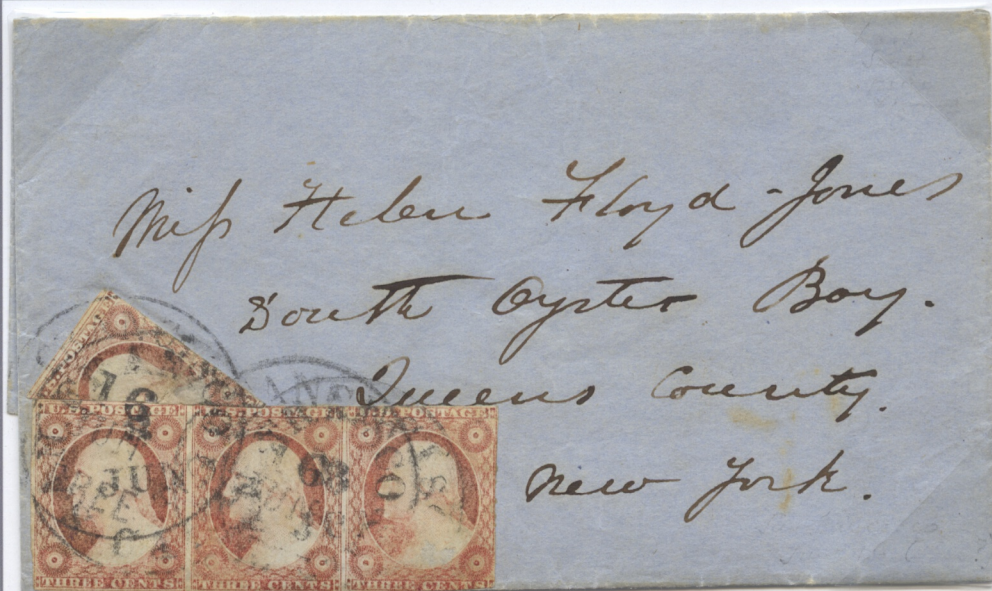 Miss Helen Floyd-Jones
South Oyster Bay.
Queens County.
New York.
U.S. POSTAGE U.S. POSTAGE U.S. POSTAGE
THREE CENTS THREE CENTS THREE CENTS